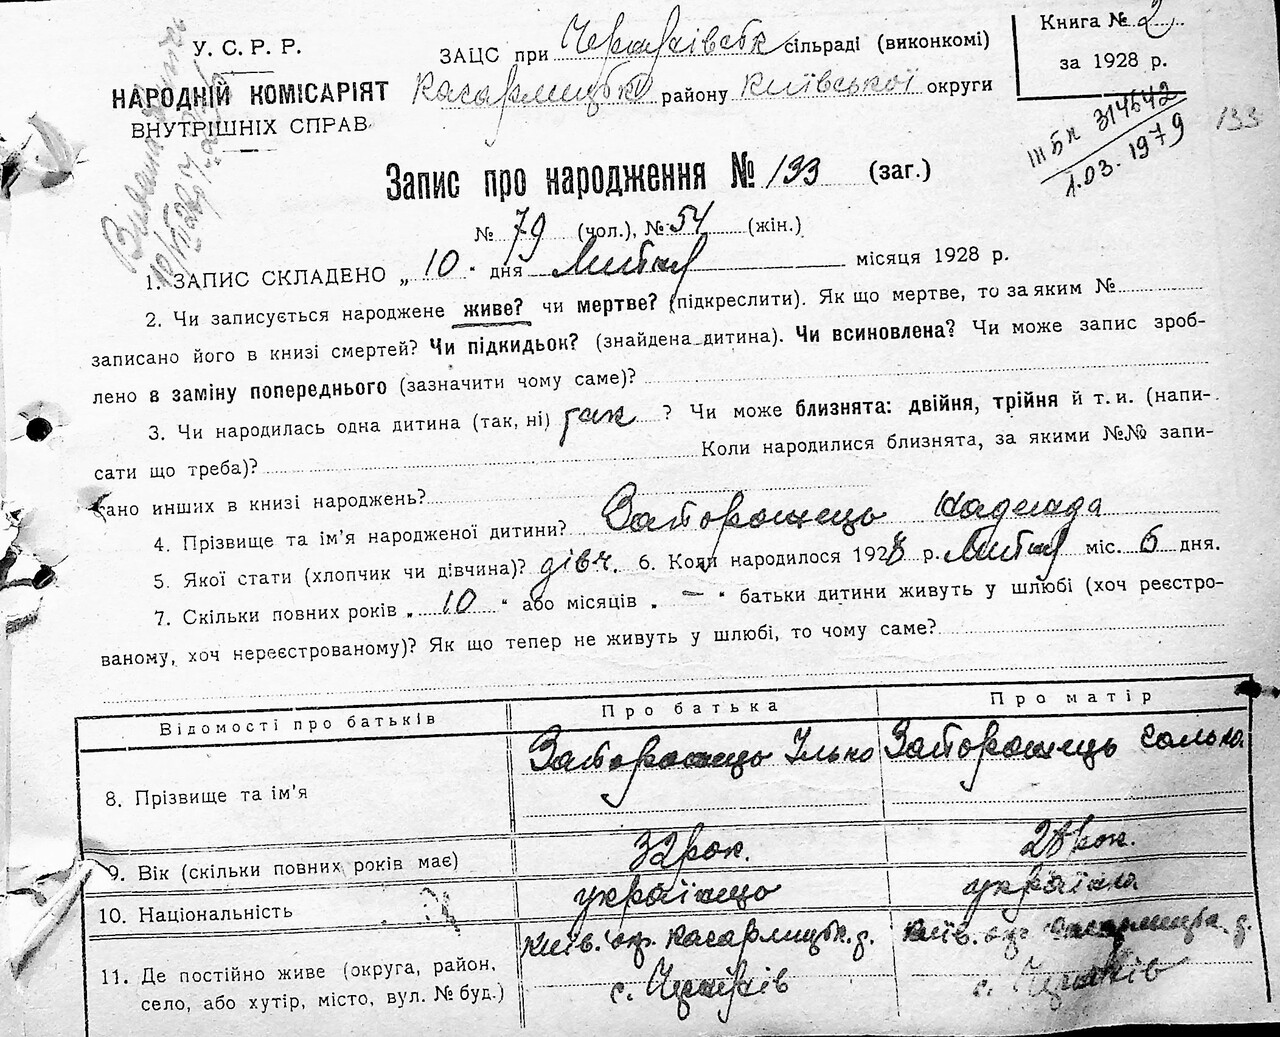 У. С. Р. Р.
НАРОДНІЙ КОМІСАРІЯТ
ВНУТРІШНІХ СПРАВ
ЗАЦС при сільраді (виконкомі)
Кагарлицьк району Київської округи
Книга № 2
за 1928 р.
ІІІ БК 314642
1.03.1979
133
Запис про народження № 133 (заг.)
№ 79 (чол.), № 54 (жін.)
1. ЗАПИС СКЛАДЕНО „ 10 " дня Лютня місяця 1928 р.
2. Чи записується народжене живе? чи мертве? (підкреслити). Як що мертве, то за яким №
записано його в книзі смертей? Чи підкидьок? (знайдена дитина). Чи всиновлена? Чи може запис зроб-
лено в заміну попереднього (зазначити чому саме)?
3. Чи народилась одна дитина (так, ні) так ? Чи може близнята: двійня, трійня й т. и. (напи-
сати що треба)? Коли народилися близнята, за якими №№ запи-
сано инших в книзі народжень?
4. Прізвище та ім'я народженої дитини? Запорожець Надежда
5. Якої стати (хлопчик чи дівчина)? дівч. 6. Коли народилося 1928 р. Лютня міс. 6 дня.
7. Скільки повних років „ 10 " або місяців „ — " батьки дитини живуть у шлюбі (хоч реєстро-
ваному, хоч нереєстрованому)? Як що тепер не живуть у шлюбі, то чому саме?
Відомості про батьків Про батька Про матір
8. Прізвище та ім'я Запорожець Ілько Запорожець
9. Вік (скільки повних років має) 32 рок. 28 рок.
10. Національність українец україн
11. Де постійно живе (округа, район, Київ. ок. Кагарлицьк. Київ. ок. Кагарлицьк.
село, або хутір, місто, вул. № буд.) с. с.